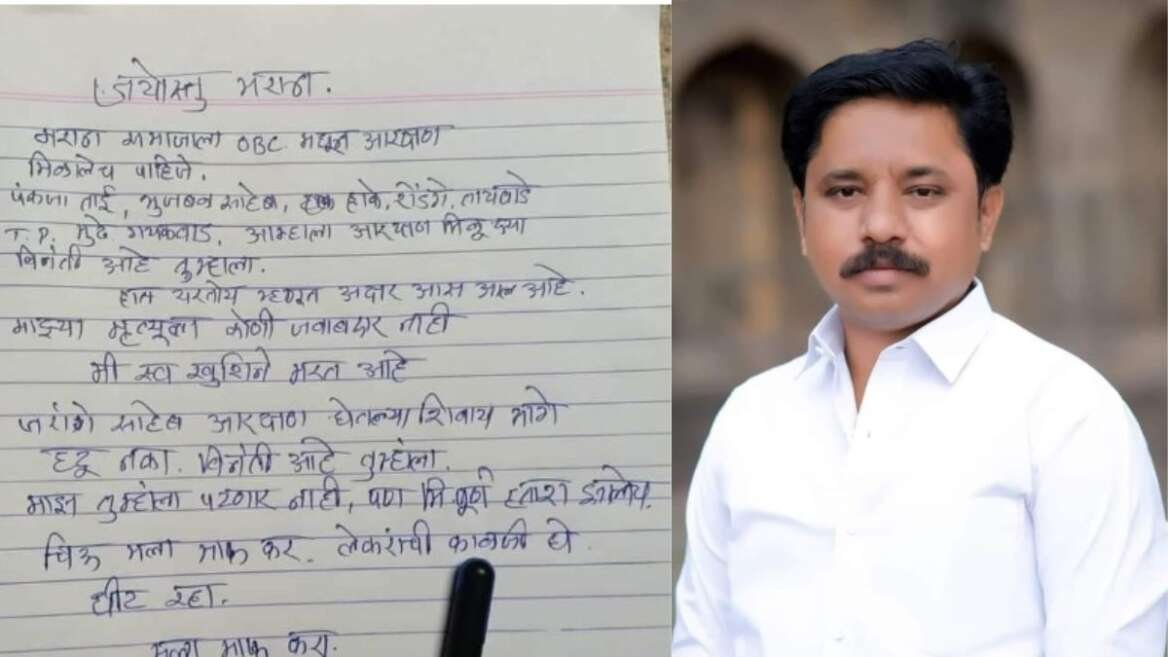 जयोस्तु मराठा.
मराठा समाजाला OBC मधून आरक्षण
मिळालेच पाहिजे.
पंकजा ताई, भुजबळ साहेब, हाके, शेंडगे, तायवाडे
T.P. मुंडे गायकवाड, आम्हाला आरक्षण मिळू द्या
विनंती आहे तुम्हाला.
हात थरतोय म्हणून अक्षर आस आल आहे.
माझ्या मृत्यूला कोणी जवाबदार नाही
मी स्व खुशिने मरत आहे
जरांगे साहेब आरक्षण घेतल्या शिवाय मागे
हटू नका. विनंती आहे तुम्हांला.
माझ तुम्हांला पटणार नाही, पण मि पूर्ण हताश झालोय.
चिऊ मला माफ कर. लेकरांची काळजी घे.
धीट रहा.
मला माफ करा.